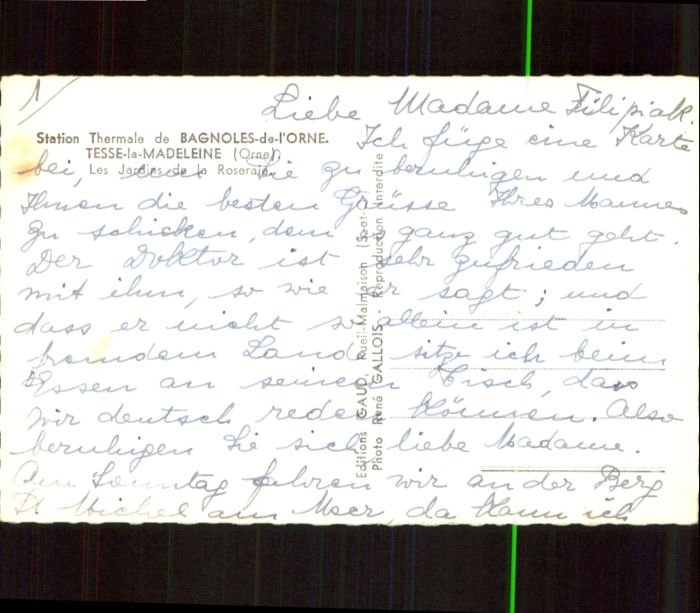 1
Liebe Madame Filipiak.
Station Thermale de BAGNOLES-de-l'ORNE.
TESSE-la-MADELEINE (Orne).
Les Jardins de la Roseraie.
Ich füge eine Karte
bei, um Sie zu beruhigen und
Ihnen die besten Grüsse Ihres Mannes
zu schicken, dem es ganz gut geht.
Der Doktor ist sehr zufrieden
mit ihm, so wie er sagt; und
dass er nicht so allein ist in
fremdem Land, sitze ich beim
Essen an seinem Tisch, dass
wir deutsch reden können. Also
beruhigen Sie sich, liebe Madame.
Am Sonntag fahren wir an der Berg
St Michel am Meer, da kann ich
Editions GAUD, Rueil-Malmaison (S.-et-
Photo René GALLOIS Reproduction interdite